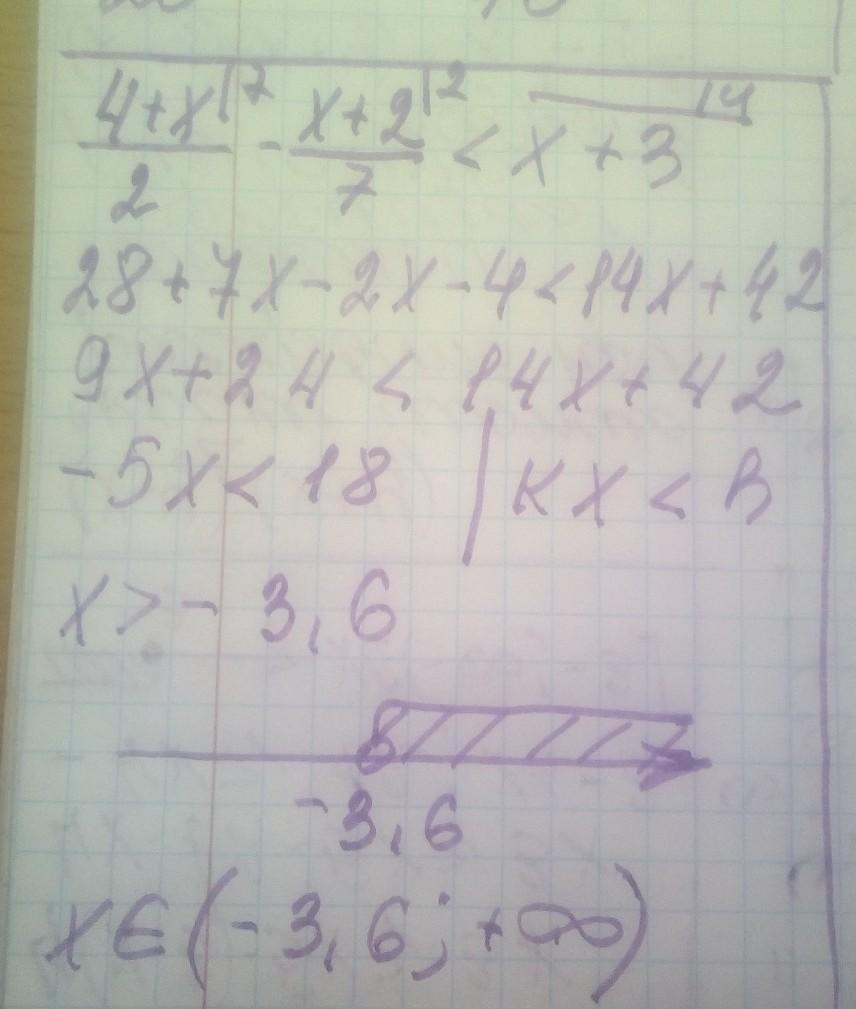 4+x|7 / 2 - x+2|2 / 7 < x + 3|14
28+7x-2x-4<14x+42
9x+24 < 14x+42
-5x<18 | кx < в
x>-3,6
-3,6
x∈(-3,6; +∞)